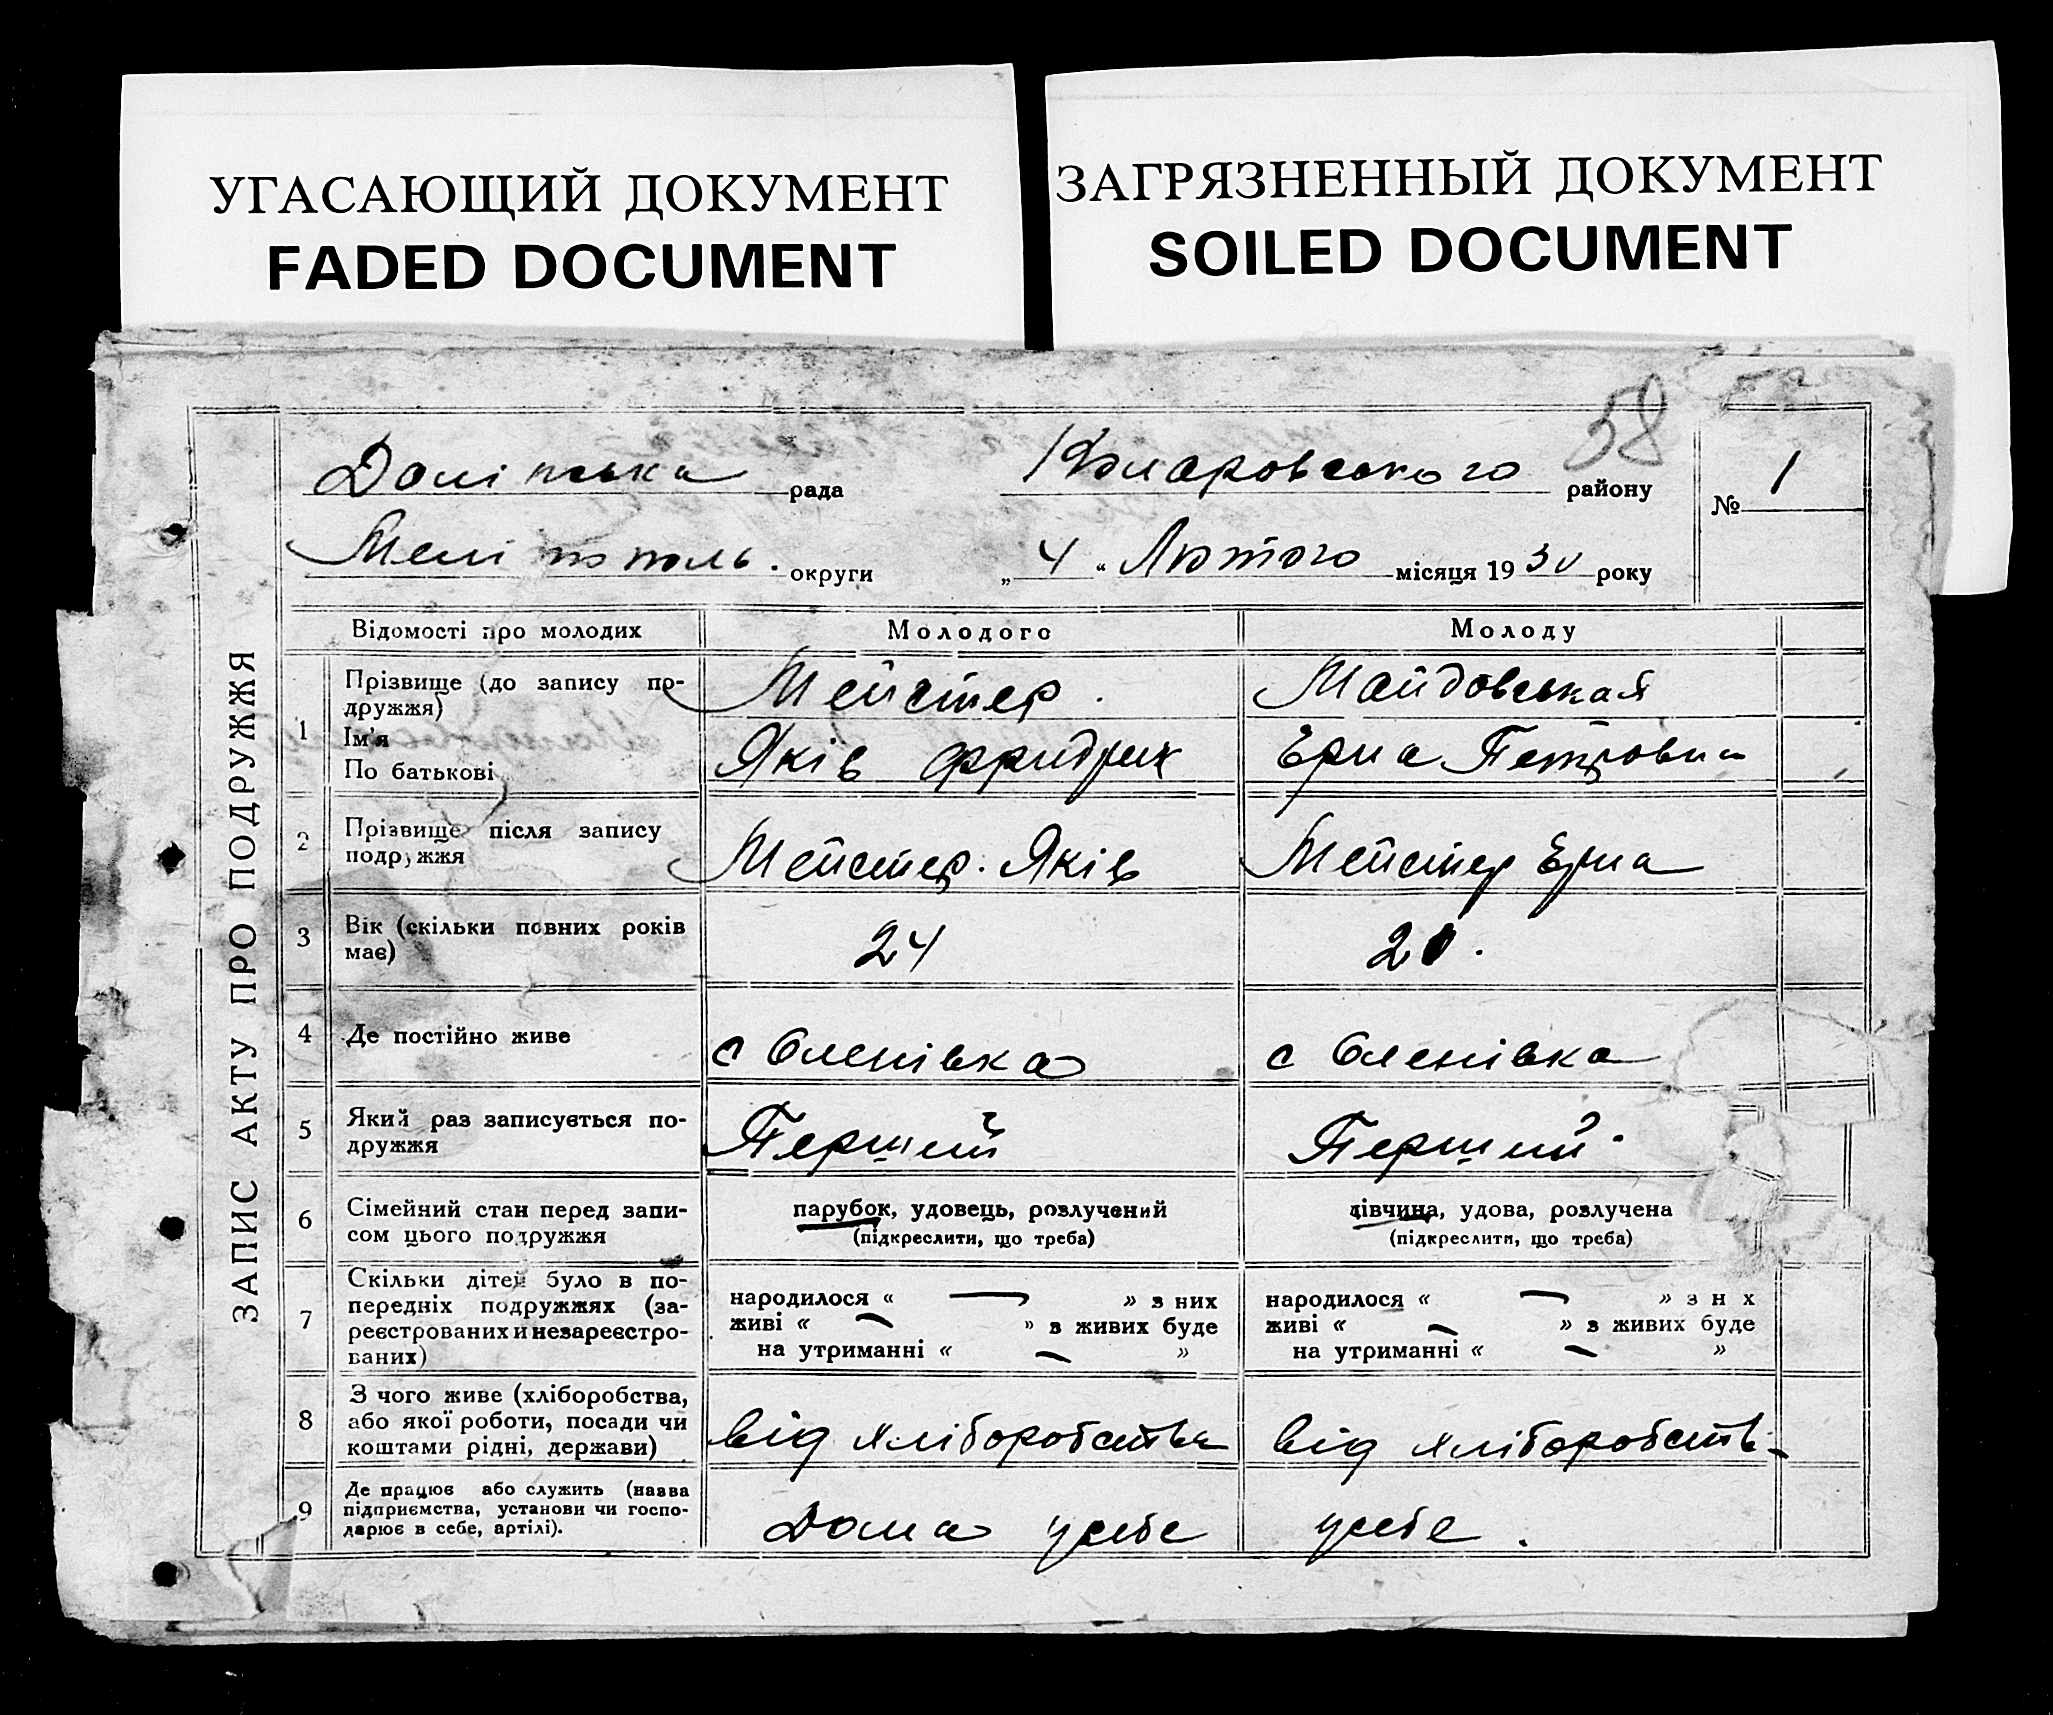 УГАСАЮЩИЙ ДОКУМЕНТ
FADED DOCUMENT
ЗАГРЯЗНЕННЫЙ ДОКУМЕНТ
SOILED DOCUMENT
58
ЗАПИС АКТУ ПРО ПОДРУЖЖЯ
Долінська рада района району № 1
Мелітополь. округи „ 4 “ Лютого місяця 1930 року
Відомості про молодих Молодого Молоду
1 Прізвище (до запису подружжя) Мейстер. Майдовськая
Ім'я По батькові Яків Фридрих Ерна Петровна
2 Прізвище після запису подружжя Мейстер. Яків Мейстер Ерна
3 Вік (скільки повних років має) 24 20.
4 Де постійно живе с Оленівка с Оленівка
5 Який раз записується подружжя Перший Перший.
6 Сімейний стан перед записом цього подружжя парубок, удовець, розлучений (підкреслити, що треба) дівчина, удова, розлучена (підкреслити, що треба)
7 Скільки дітей було в попередніх подружжях (зареєстрованих и незареєстрованих) народилося « — » з них живі « — » в живих буде на утриманні « — » народилося « — » з них живі « — » в живих буде на утриманні « — »
8 З чого живе (хліборобства, або якої роботи, посади чи коштами рідні, держави) від хліборобства від хліборобств
9 Де працює або служить (назва підприємства, установи чи господарює в себе, артілі). Дома у себе у себе.